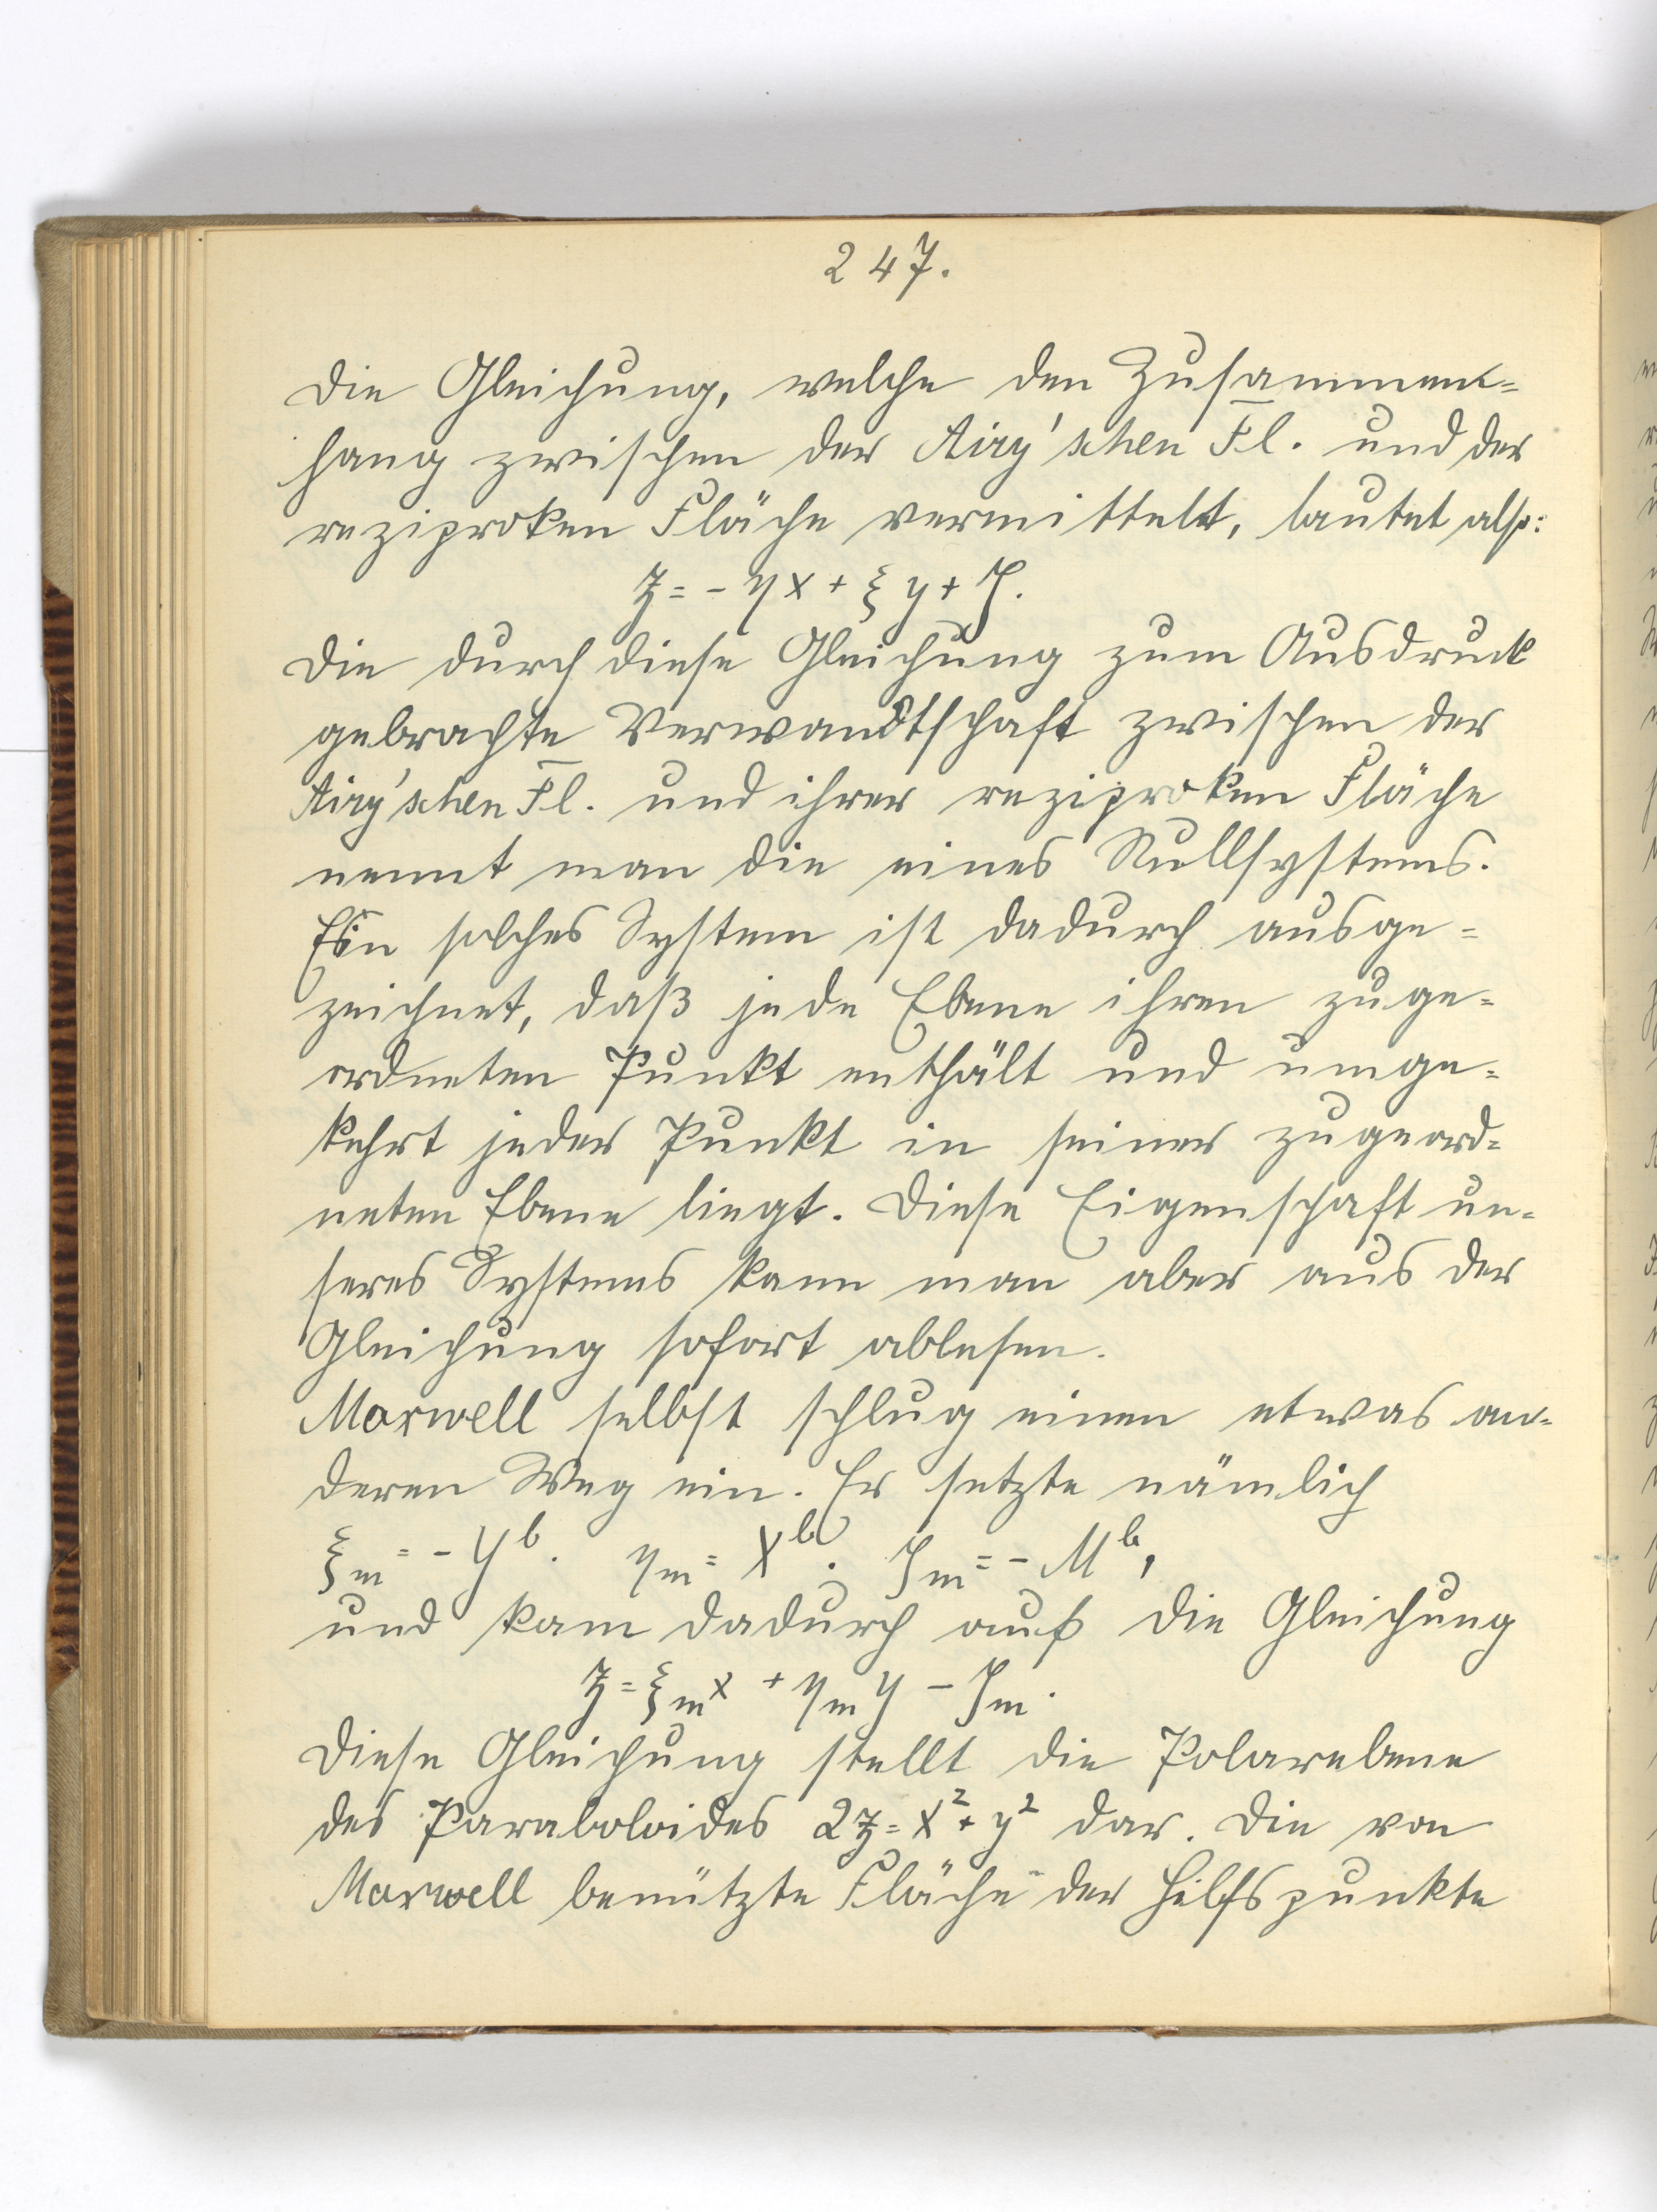 247.
Die Gleichung, welche den Zusammen-
hang zwischen der Airy'schen Fl. und der
reziproken Fläche vermittelt, lautet also:
z = - ηx + ξy + ζ.
Die durch diese Gleichung zum Ausdruck
gebrachte Verwandtschaft zwischen der
Airy'schen Fl. und ihrer reziproken Fläche
nennt man die eines Nullsystems.
Ein solches System ist dadurch ausge-
zeichnet, daß jede Ebene ihren zuge-
ordneten Punkt enthält und umge-
kehrt jeder Punkt in seiner zugeord-
neten Ebene liegt. Diese Eigenschaft un-
seres Systems kann man aber aus der
Gleichung sofort ablesen.
Maxwell selbst schlug einen etwas an-
deren Weg ein. Er setzte nämlich
ξm = - Yᵇ. ηm = Xᵇ. ζm = - Mᵇ,
und kam dadurch auf die Gleichung
z = ξm x + ηm y - ζm.
Diese Gleichung stellt die Polarebene
des Paraboloides 2z = x² + y² dar. Die von
Maxwell benützte Fläche der Hilfspunkte